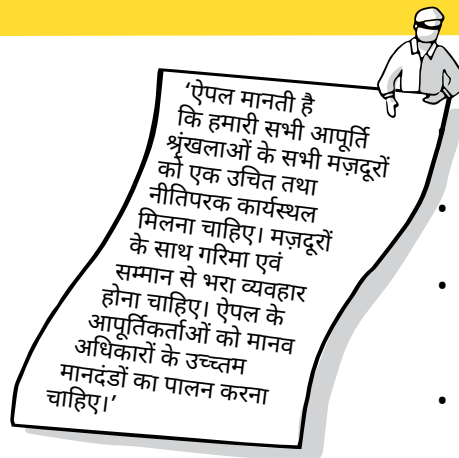 ‘ऐपल मानती है
कि हमारी सभी आपूर्ति
श्रृंखलाओं के सभी मज़दूरों
को एक उचित तथा
नीतिपरक कार्यस्थल
मिलना चाहिए। मज़दूरों
के साथ गरिमा एवं
सम्मान से भरा व्यवहार
होना चाहिए। ऐपल के
आपूर्तिकर्ताओं को मानव
अधिकारों के उच्च्तम
मानदंडों का पालन करना
चाहिए।’